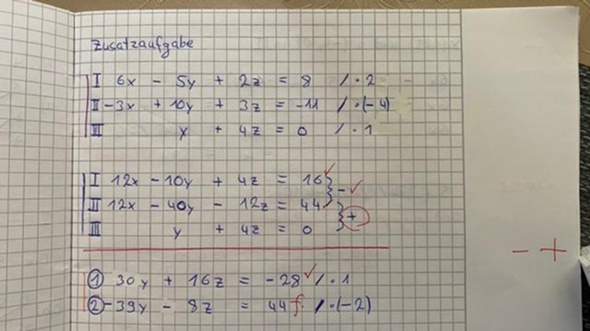 Zusatzaufgabe
I 6x - 5y + 2z = 8 / · 2
II -3x + 10y + 3z = -11 / · (-4)
III y + 4z = 0 / · 1
I 12x - 10y + 4z = 16 } - ✓
II 12x - 40y - 12z = 44 } +
III y + 4z = 0
- +
① 30y + 16z = -28 ✓ / · 1
② -39y - 8z = 44 f / · (-2)